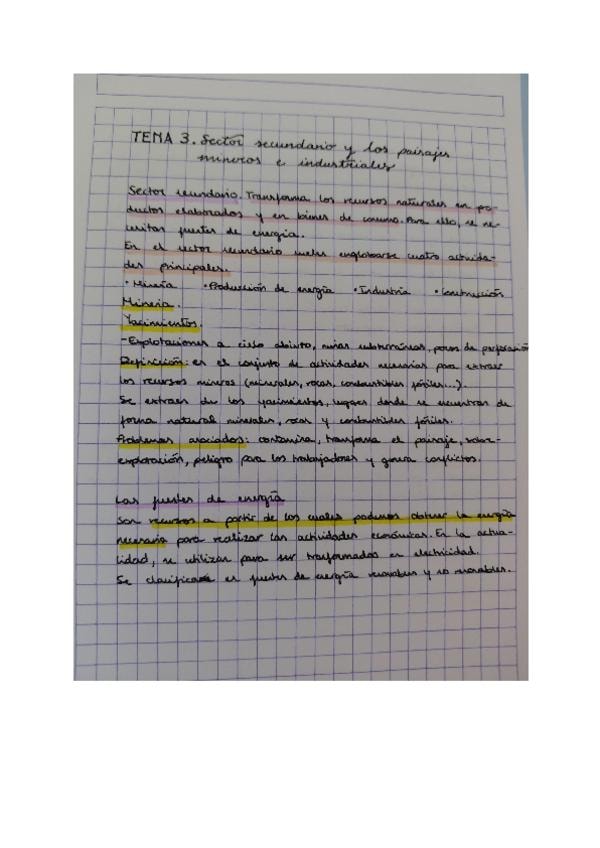 TEMA 3. Sector secundario y los paisajes
mineros e industriales
Sector secundario. Transforma los recursos naturales en pro-
ductos elaborados y en bienes de consumo. Para ello, se ne-
cesitan fuentes de energía.
En el sector secundario suelen englobarse cuatro activida-
des principales.
• Minería • Producción de energía • Industria • Construcción
Minería.
Yacimientos.
- Explotaciones a cielo abierto, minas subterráneas, pozos de perforación
Definición: es el conjunto de actividades necesarias para extraer
los recursos mineros (minerales, rocas, combustibles fósiles...).
Se extraen de los yacimientos, lugares donde se encuentran de
forma natural minerales, rocas y combustibles fósiles.
Problemas asociados: contamina, transforma el paisaje, sobre-
explotación, peligro para los trabajadores y genera conflictos.
Las fuentes de energía
Son recursos a partir de los cuales podemos obtener la energía
necesaria para realizar las actividades económicas. En la actua-
lidad, se utilizan para ser trasformados en electricidad.
Se clasifican en fuentes de energía renovables y no renovables.